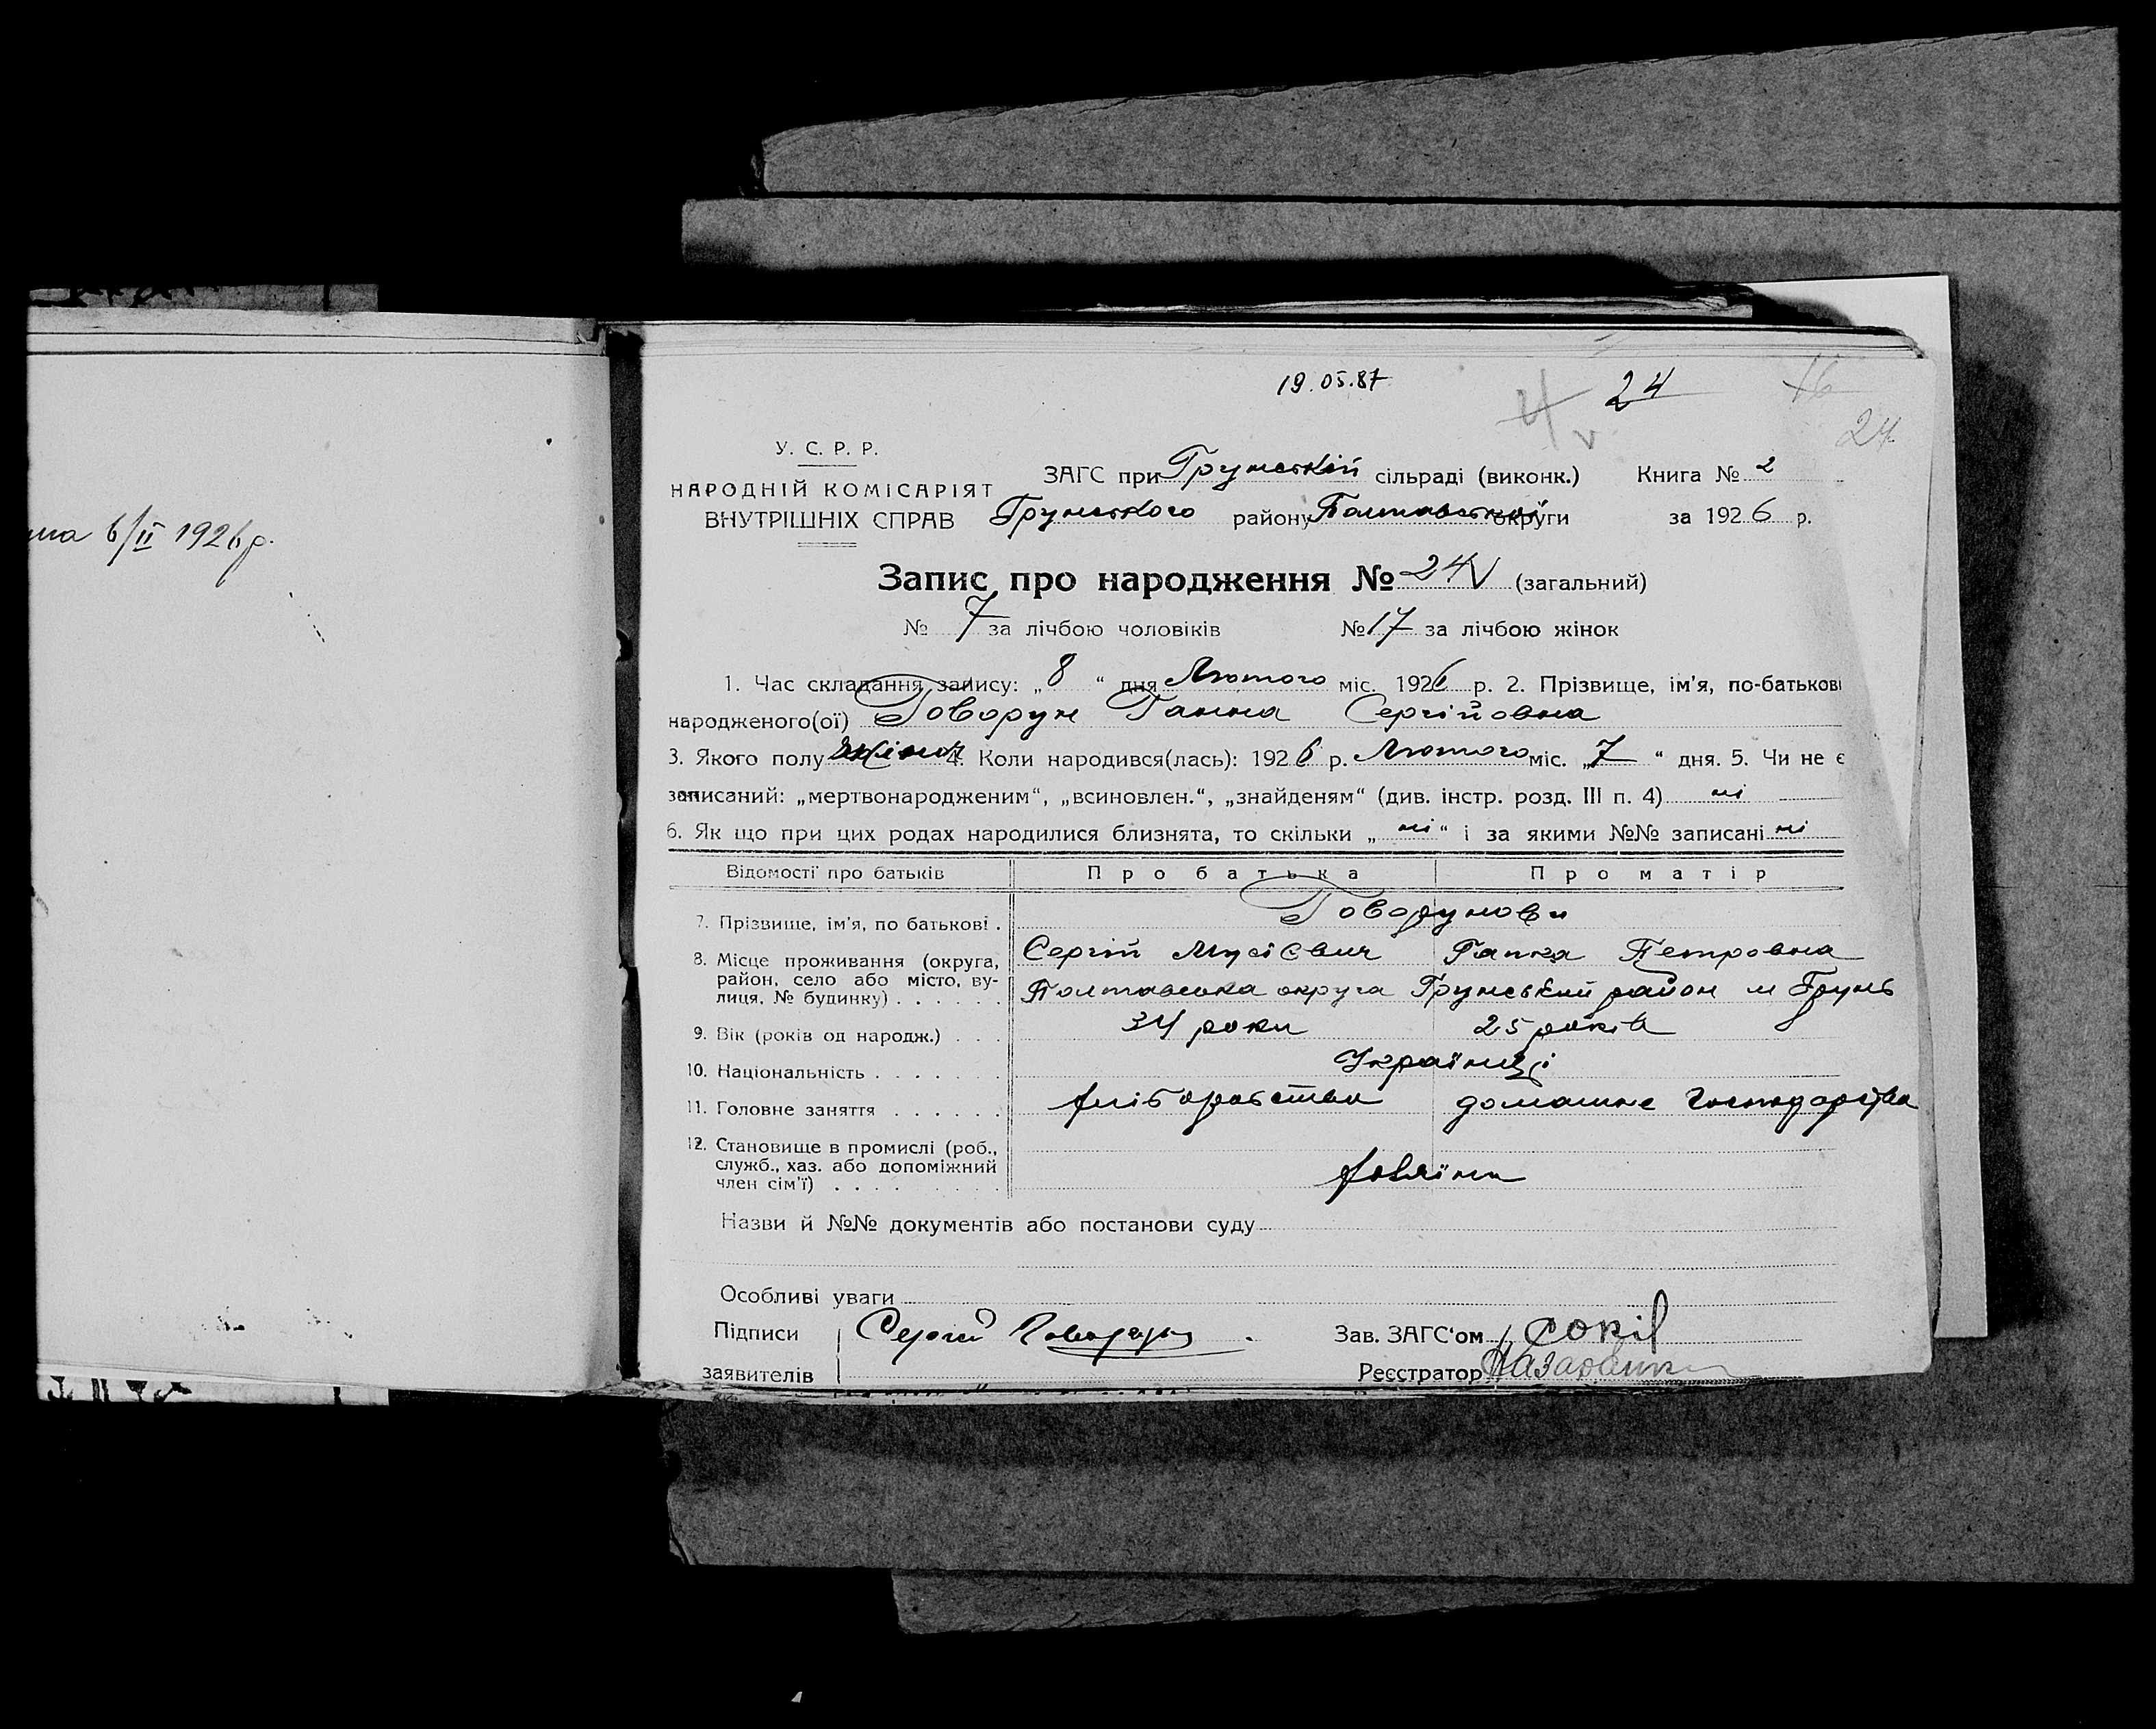 19.05.87
4 24 16
24
У. С. Р. Р.
НАРОДНІЙ КОМІСАРІЯТ
ВНУТРІШНІХ СПРАВ
ЗАГС при Грунській сільраді (виконк.) Книга № 2
Грунського району Полтавської округи за 1926 р.
Запис про народження № 24 V (загальний)
№ 7 за лічбою чоловіків № 17 за лічбою жінок
1. Час складання запису: „8“ дня Лютого міс. 1926 р. 2. Прізвище, ім'я, по-батькові
народженого(ої) Говорун Ганна Сергійовна
3. Якого полу жіноч 4. Коли народився(лась): 1926 р. Лютого міс. „7“ дня. 5. Чи не є
записаний: „мертвонародженим“, „всиновлен.“, „знайденям“ (див. інстр. розд. III п. 4) ні
6. Як що при цих родах народилися близнята, то скільки „ні“ і за якими №№ записані ні
Відомості про батьків Про батька Про матір
7. Прізвище, ім'я, по батькові . Говорунови
Сергій Мусієвич Гапка Петровна
8. Місце проживання (округа,
район, село або місто, ву-
лиця, № будинку) . . . . . . Полтавська округа Грунський район м Грунь
9. Вік (років од народж.) . . . 34 роки 25 років
10. Національність . . . . . . . Українці
11. Головне заняття . . . . . . хліборобство домашнє господарство
12. Становище в промислі (роб.,
служб., хаз. або допоміжний
член сім'ї) . . . . хазяїни
Назви й №№ документів або постанови суду
Особливі уваги
Підписи Сергій Говорун Зав. ЗАГС'ом Сокіл
заявителів Реєстратор
6/II 1926р.